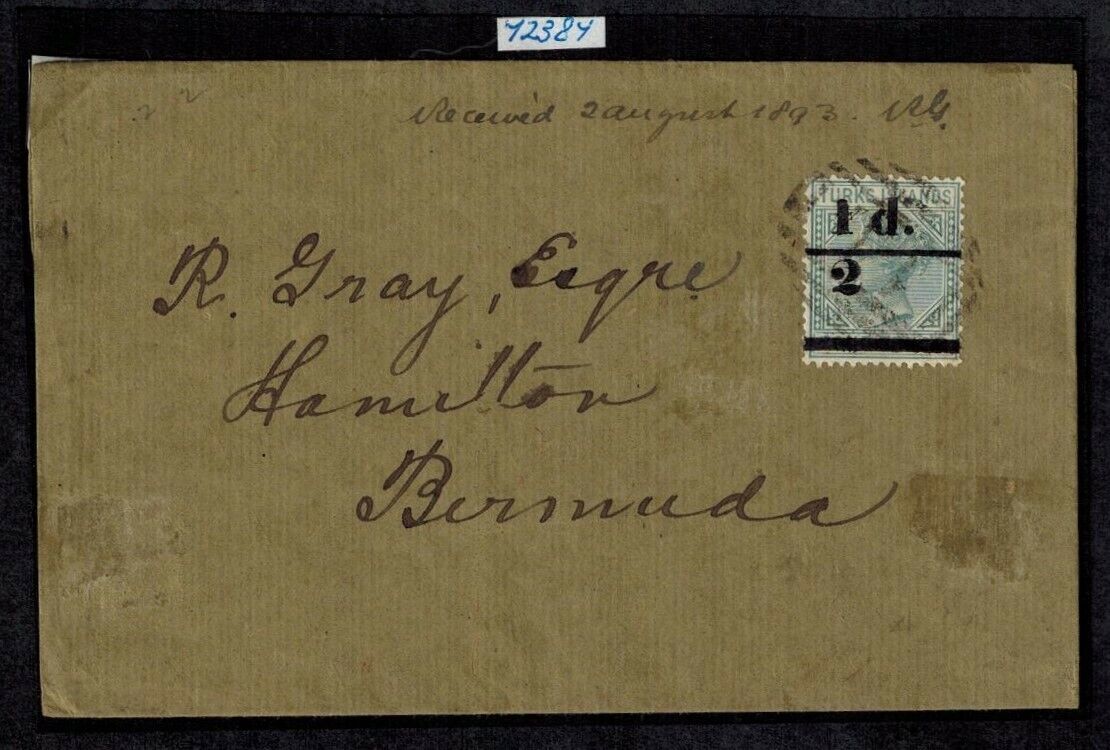 72384
Received 2 august 1893. RG.
TURKS ISLANDS
1d.
2
R. Gray, Esqre
Hamilton
Bermuda